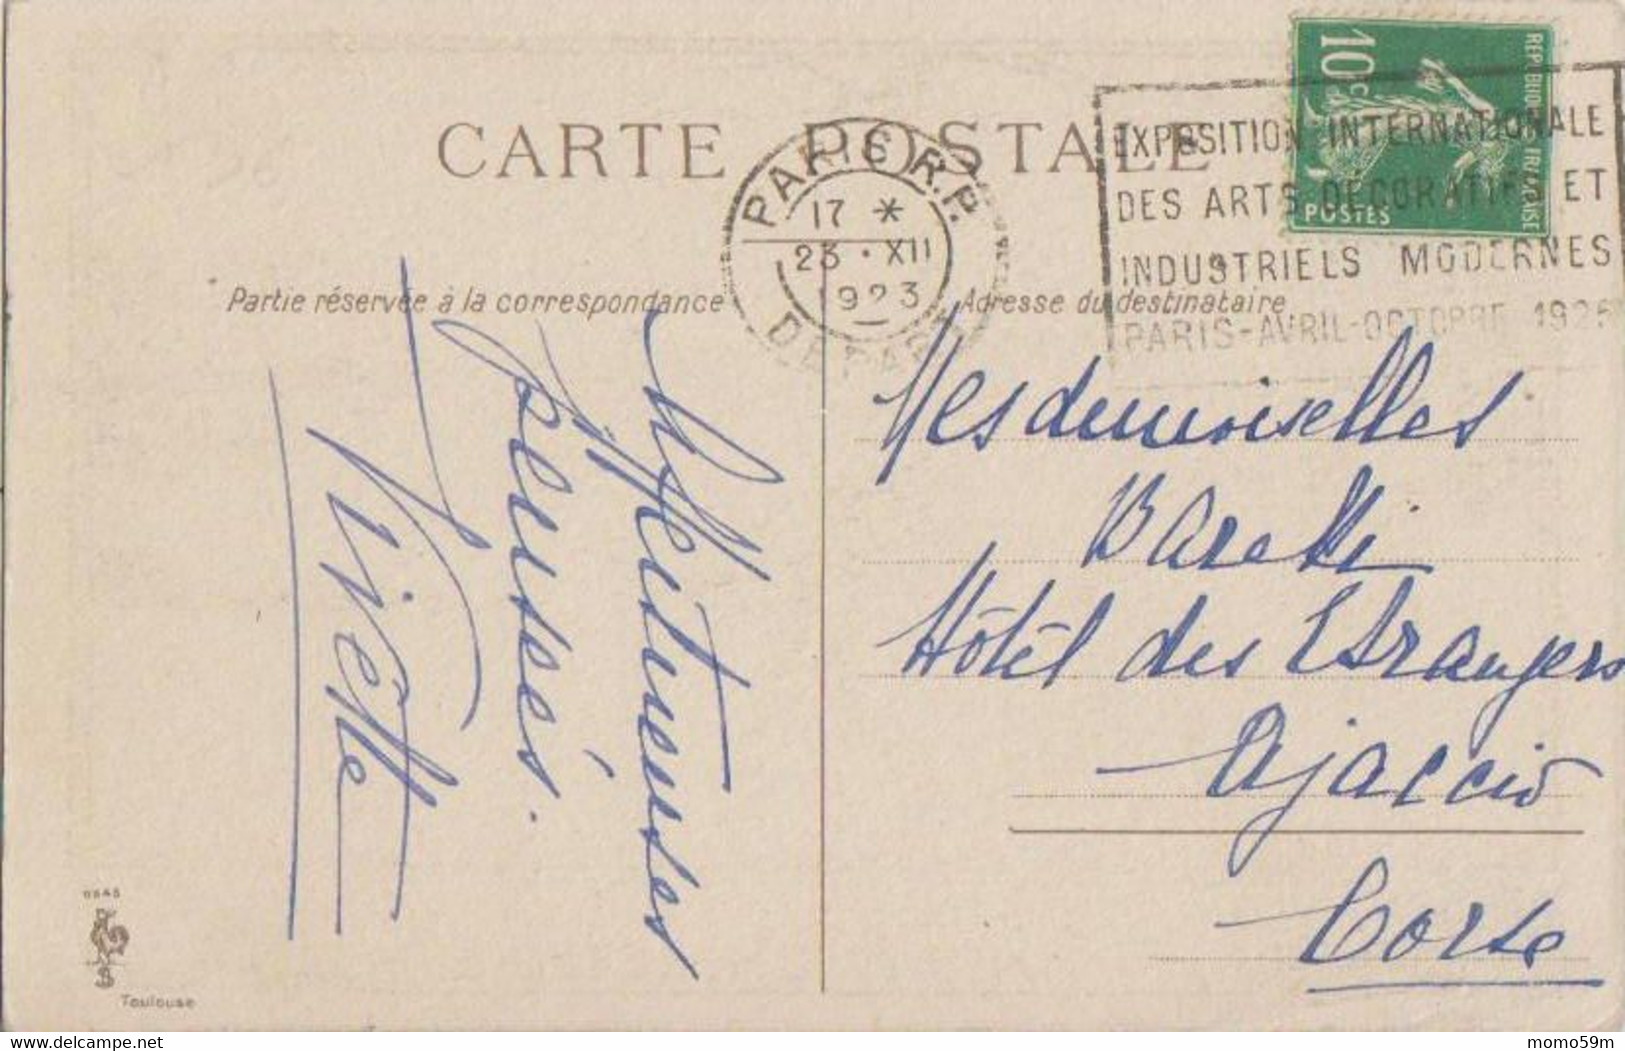 CARTE POSTALE
Partie réservée à la correspondance
Adresse du destinataire
REPUBLIQUE FRANÇAISE
10c
POSTES
PARIS R.P.
17 *
23 · XII
923
DEPART
EXPOSITION INTERNATIONALE
DES ARTS DECORATIFS ET
INDUSTRIELS MODERNES
PARIS-AVRIL-OCTOBRE 1925
Affectueuses
pensées.
Mesdemoiselles
Hôtel des Etrangers
Ajaccio
Corse
Toulouse
momo59m